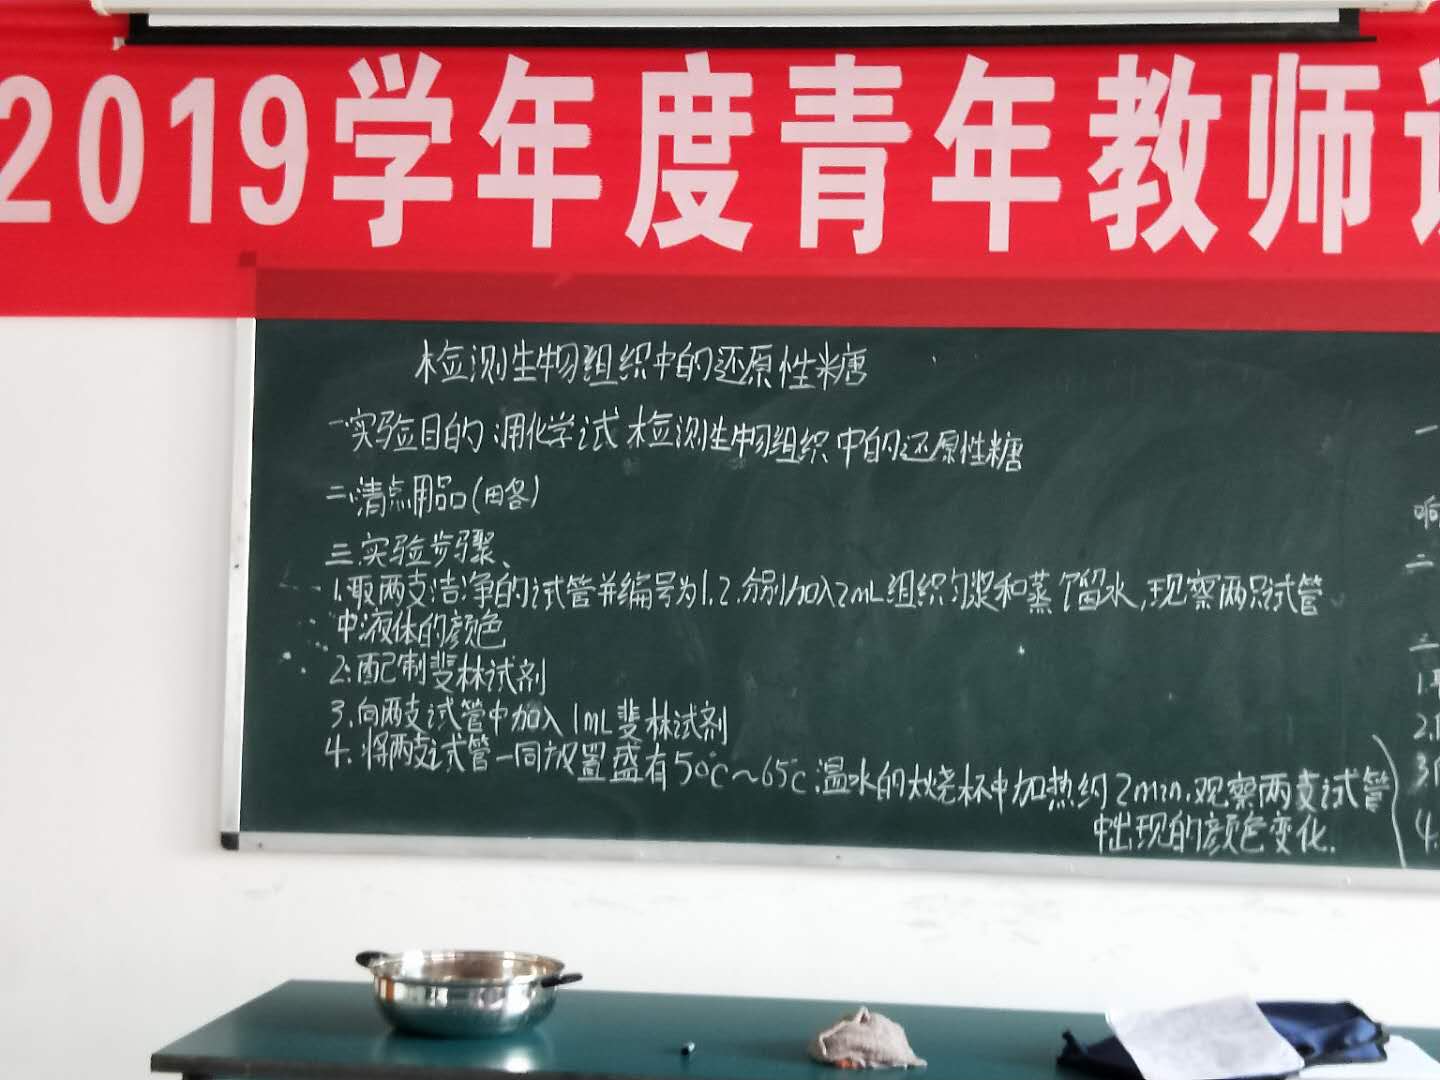 2019学年度青年教师
检测生物组织中的还原性糖
一实验目的:用化学试 检测生物组织中的还原性糖
二.清点用品(田各)
三.实验步骤、
1.取两支洁净的试管并编号为1.2.分别加入2mL组织匀浆和蒸馏水,现察两只试管
中液体的颜色
2.配制斐林试剂
3.向两支试管中加入1mL斐林试剂
4.将两支试管一同放置盛有50℃~65℃.温水的大烧杯中加热约2min.观察两支试管
中出现的颜色变化.
一
响
二
三
1.
2.
3.
4.